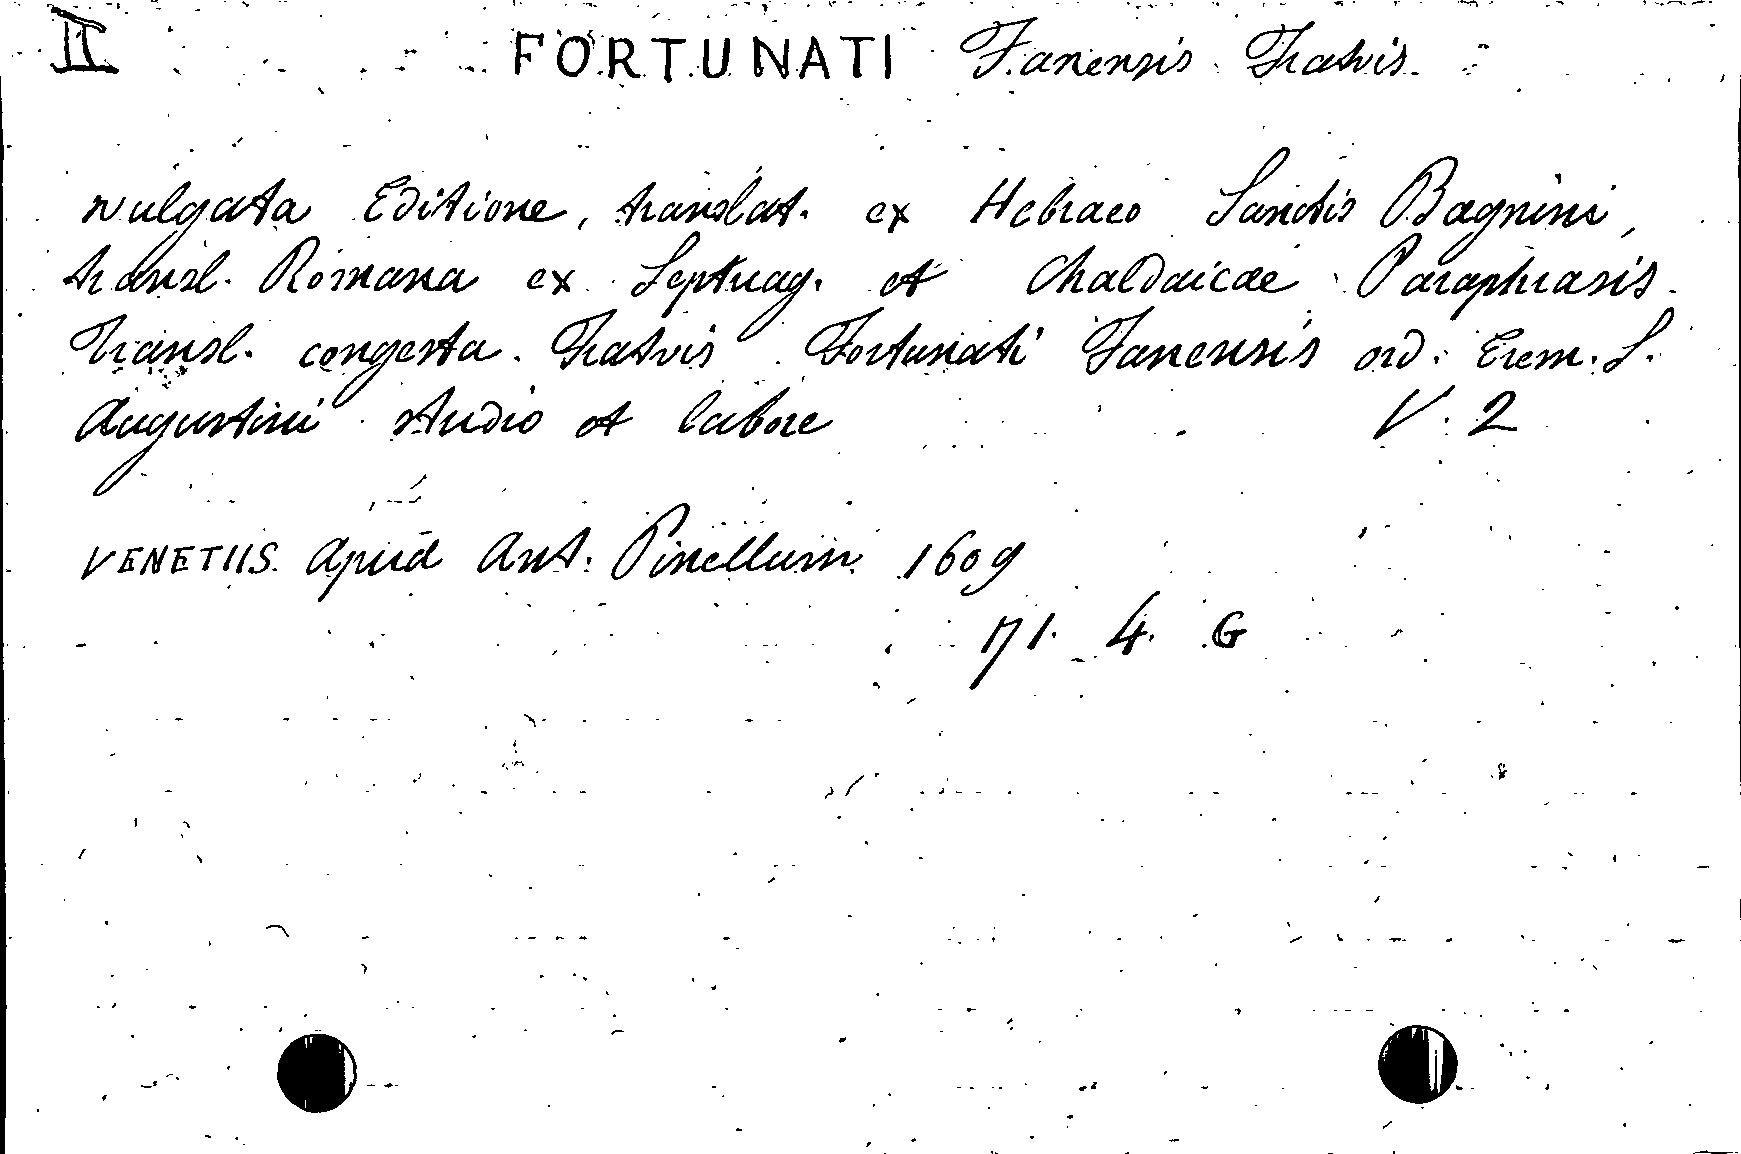 II FORTUNATI Fanensis Fratris
vulgata Editione, translat. ex Hebraeo Sanctis Bagnini,
transl. Romana ex Septuag. et Chaldaicae Paraphrasis
Transl. congesta. Fratris Fortunati Fanensis ord. Erem. S.
Augustini studio et labore V. 2
VENETIIS apud Ant. Pinellum 1609
171. 4. G